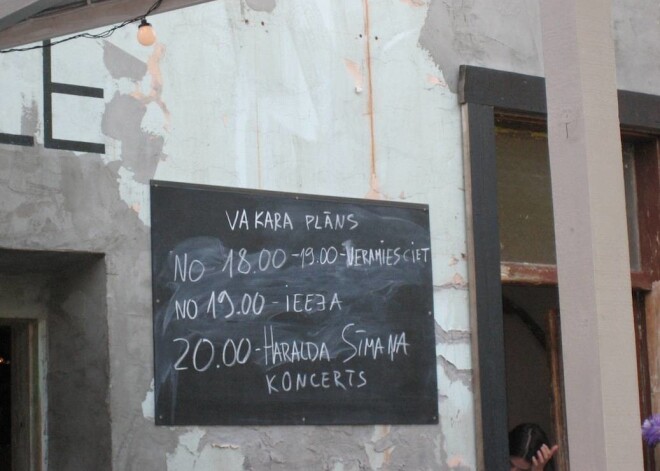 LE
VAKARA PLĀNS
NO 18.00-19.00-VERAMIESCIET
NO 19.00-IEEJA
20.00-HARALDA SĪMAŅA
KONCERTS